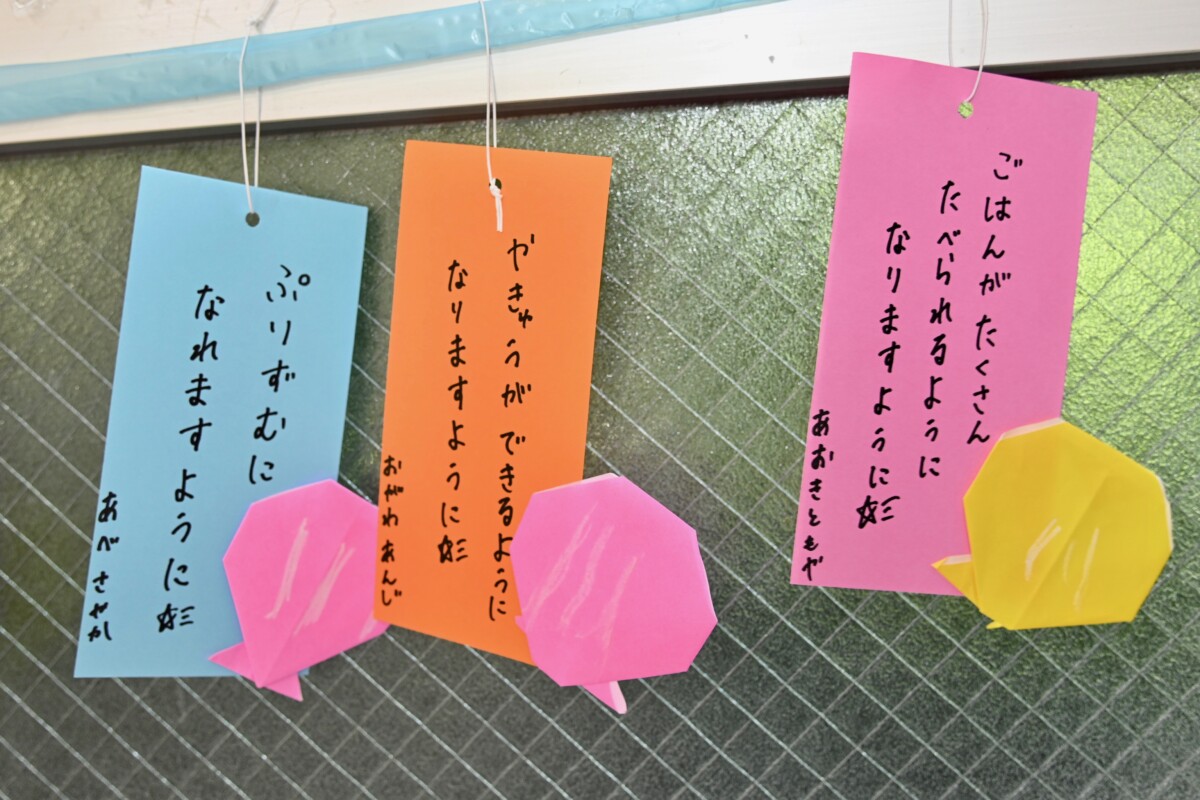 ぷりずむに
なれますように☆彡
あべさやか
やきゅうができるように
なりますように☆彡
おがわ あんじ
ごはんが たくさん
たべられるように
なりますように☆彡
あおきともや